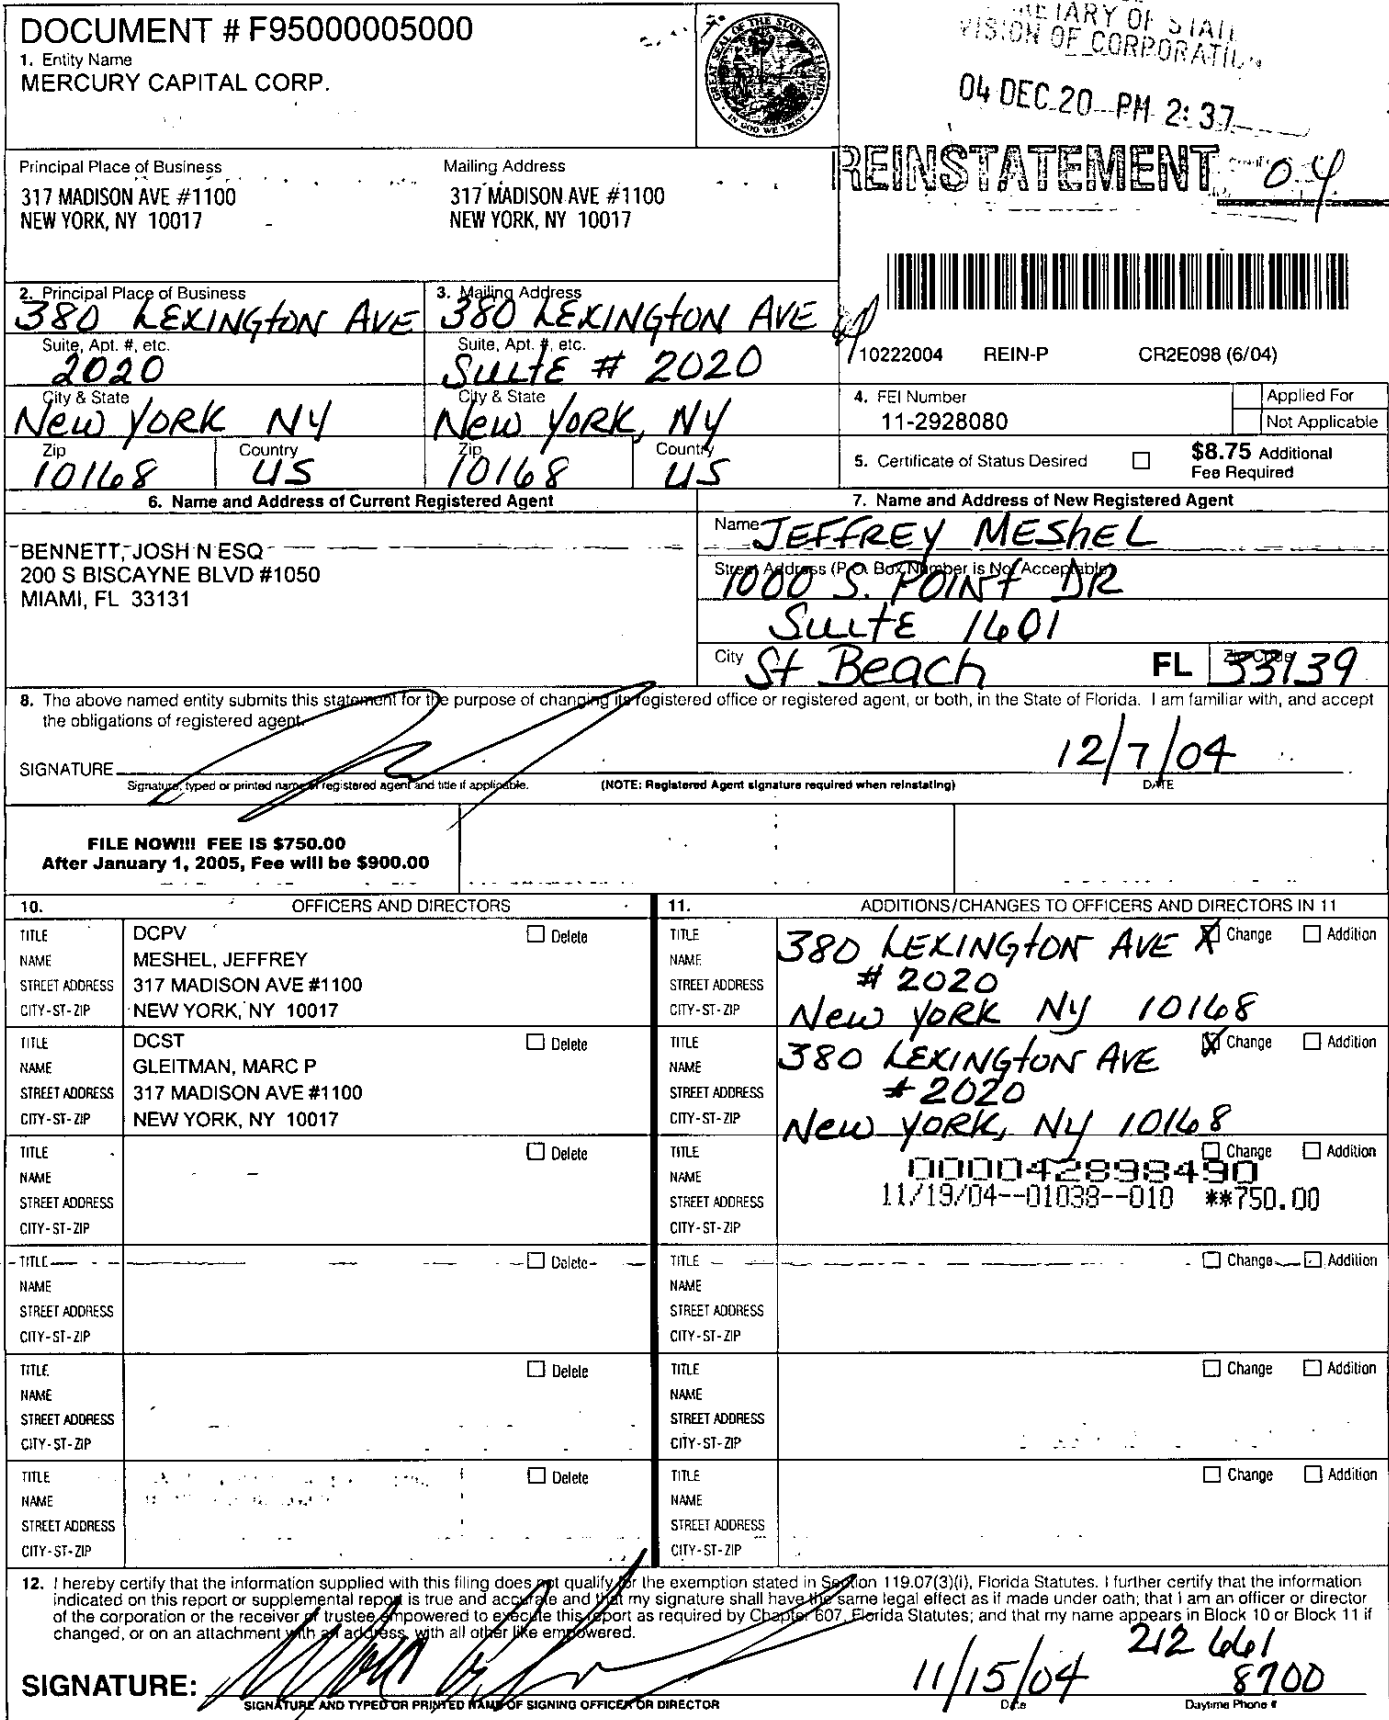 DOCUMENT # F95000005000
1. Entity Name
MERCURY CAPITAL CORP.
GREAT SEAL OF THE STATE OF FLORIDA
IN GOD WE TRUST
04 DEC 20 PM 2:37
REINSTATEMENT 04
Principal Place of Business
317 MADISON AVE #1100
NEW YORK, NY 10017
Mailing Address
317 MADISON AVE #1100
NEW YORK, NY 10017
2. Principal Place of Business
380 LEXINGTON AVE
Suite, Apt. #, etc.
2020
City & State
New YORK NY
Zip
10168
Country
US
3. Mailing Address
380 LEXINGTON AVE
Suite, Apt. #, etc.
SuitE # 2020
City & State
New YORK, NY
Zip
10168
Country
US
10222004 REIN-P CR2E098 (6/04)
4. FEI Number
11-2928080
Applied For
Not Applicable
5. Certificate of Status Desired
$8.75 Additional
Fee Required
6. Name and Address of Current Registered Agent
BENNETT, JOSH N ESQ
200 S BISCAYNE BLVD #1050
MIAMI, FL 33131
7. Name and Address of New Registered Agent
Name JEFFREY MESHEL
Street Address (P.O. Box Number is Not Acceptable)
1000 S. POINT DR
SuitE 1601
City St Beach FL Zip Code 33139
8. The above named entity submits this statement for the purpose of changing its registered office or registered agent, or both, in the State of Florida. I am familiar with, and accept
the obligations of registered agent.
SIGNATURE 12/7/04
Signature, typed or printed name of registered agent and title if applicable. (NOTE: Registered Agent signature required when reinstating) DATE
FILE NOW!!! FEE IS $750.00
After January 1, 2005, Fee will be $900.00
10. OFFICERS AND DIRECTORS
TITLE DCPV Delete
NAME MESHEL, JEFFREY
STREET ADDRESS 317 MADISON AVE #1100
CITY-ST-ZIP NEW YORK, NY 10017
TITLE DCST Delete
NAME GLEITMAN, MARC P
STREET ADDRESS 317 MADISON AVE #1100
CITY-ST-ZIP NEW YORK, NY 10017
TITLE Delete
NAME
STREET ADDRESS
CITY-ST-ZIP
TITLE Delete
NAME
STREET ADDRESS
CITY-ST-ZIP
TITLE Delete
NAME
STREET ADDRESS
CITY-ST-ZIP
TITLE Delete
NAME
STREET ADDRESS
CITY-ST-ZIP
11. ADDITIONS/CHANGES TO OFFICERS AND DIRECTORS IN 11
TITLE 380 LEXINGTON AVE X Change Addition
NAME
STREET ADDRESS # 2020
CITY-ST-ZIP New YORK NY 10168
TITLE 380 LEXINGTON AVE X Change Addition
NAME
STREET ADDRESS # 2020
CITY-ST-ZIP New YORK, NY 10168
TITLE Change Addition
NAME 000042898490
STREET ADDRESS 11/19/04--01038--010 **750.00
CITY-ST-ZIP
TITLE Change Addition
NAME
STREET ADDRESS
CITY-ST-ZIP
TITLE Change Addition
NAME
STREET ADDRESS
CITY-ST-ZIP
TITLE Change Addition
NAME
STREET ADDRESS
CITY-ST-ZIP
12. I hereby certify that the information supplied with this filing does not qualify for the exemption stated in Section 119.07(3)(i), Florida Statutes. I further certify that the information
indicated on this report or supplemental report is true and accurate and that my signature shall have the same legal effect as if made under oath; that I am an officer or director
of the corporation or the receiver or trustee empowered to execute this report as required by Chapter 607, Florida Statutes; and that my name appears in Block 10 or Block 11 if
changed, or on an attachment with an address, with all other like empowered.
SIGNATURE: 11/15/04 212 661 8700
SIGNATURE AND TYPED OR PRINTED NAME OF SIGNING OFFICER OR DIRECTOR Date Daytime Phone #